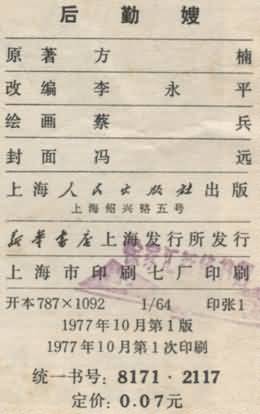 后勤嫂
原著 方楠
改编 李永平
绘画 蔡兵
封面 冯远
上海人民出版社出版
上海绍兴路五号
新华书店上海发行所发行
上海市印刷七厂印刷
开本787×1092 1/64 印张1
1977年10月第1版
1977年10月第1次印刷
统一书号：8171·2117
定价：0.07元